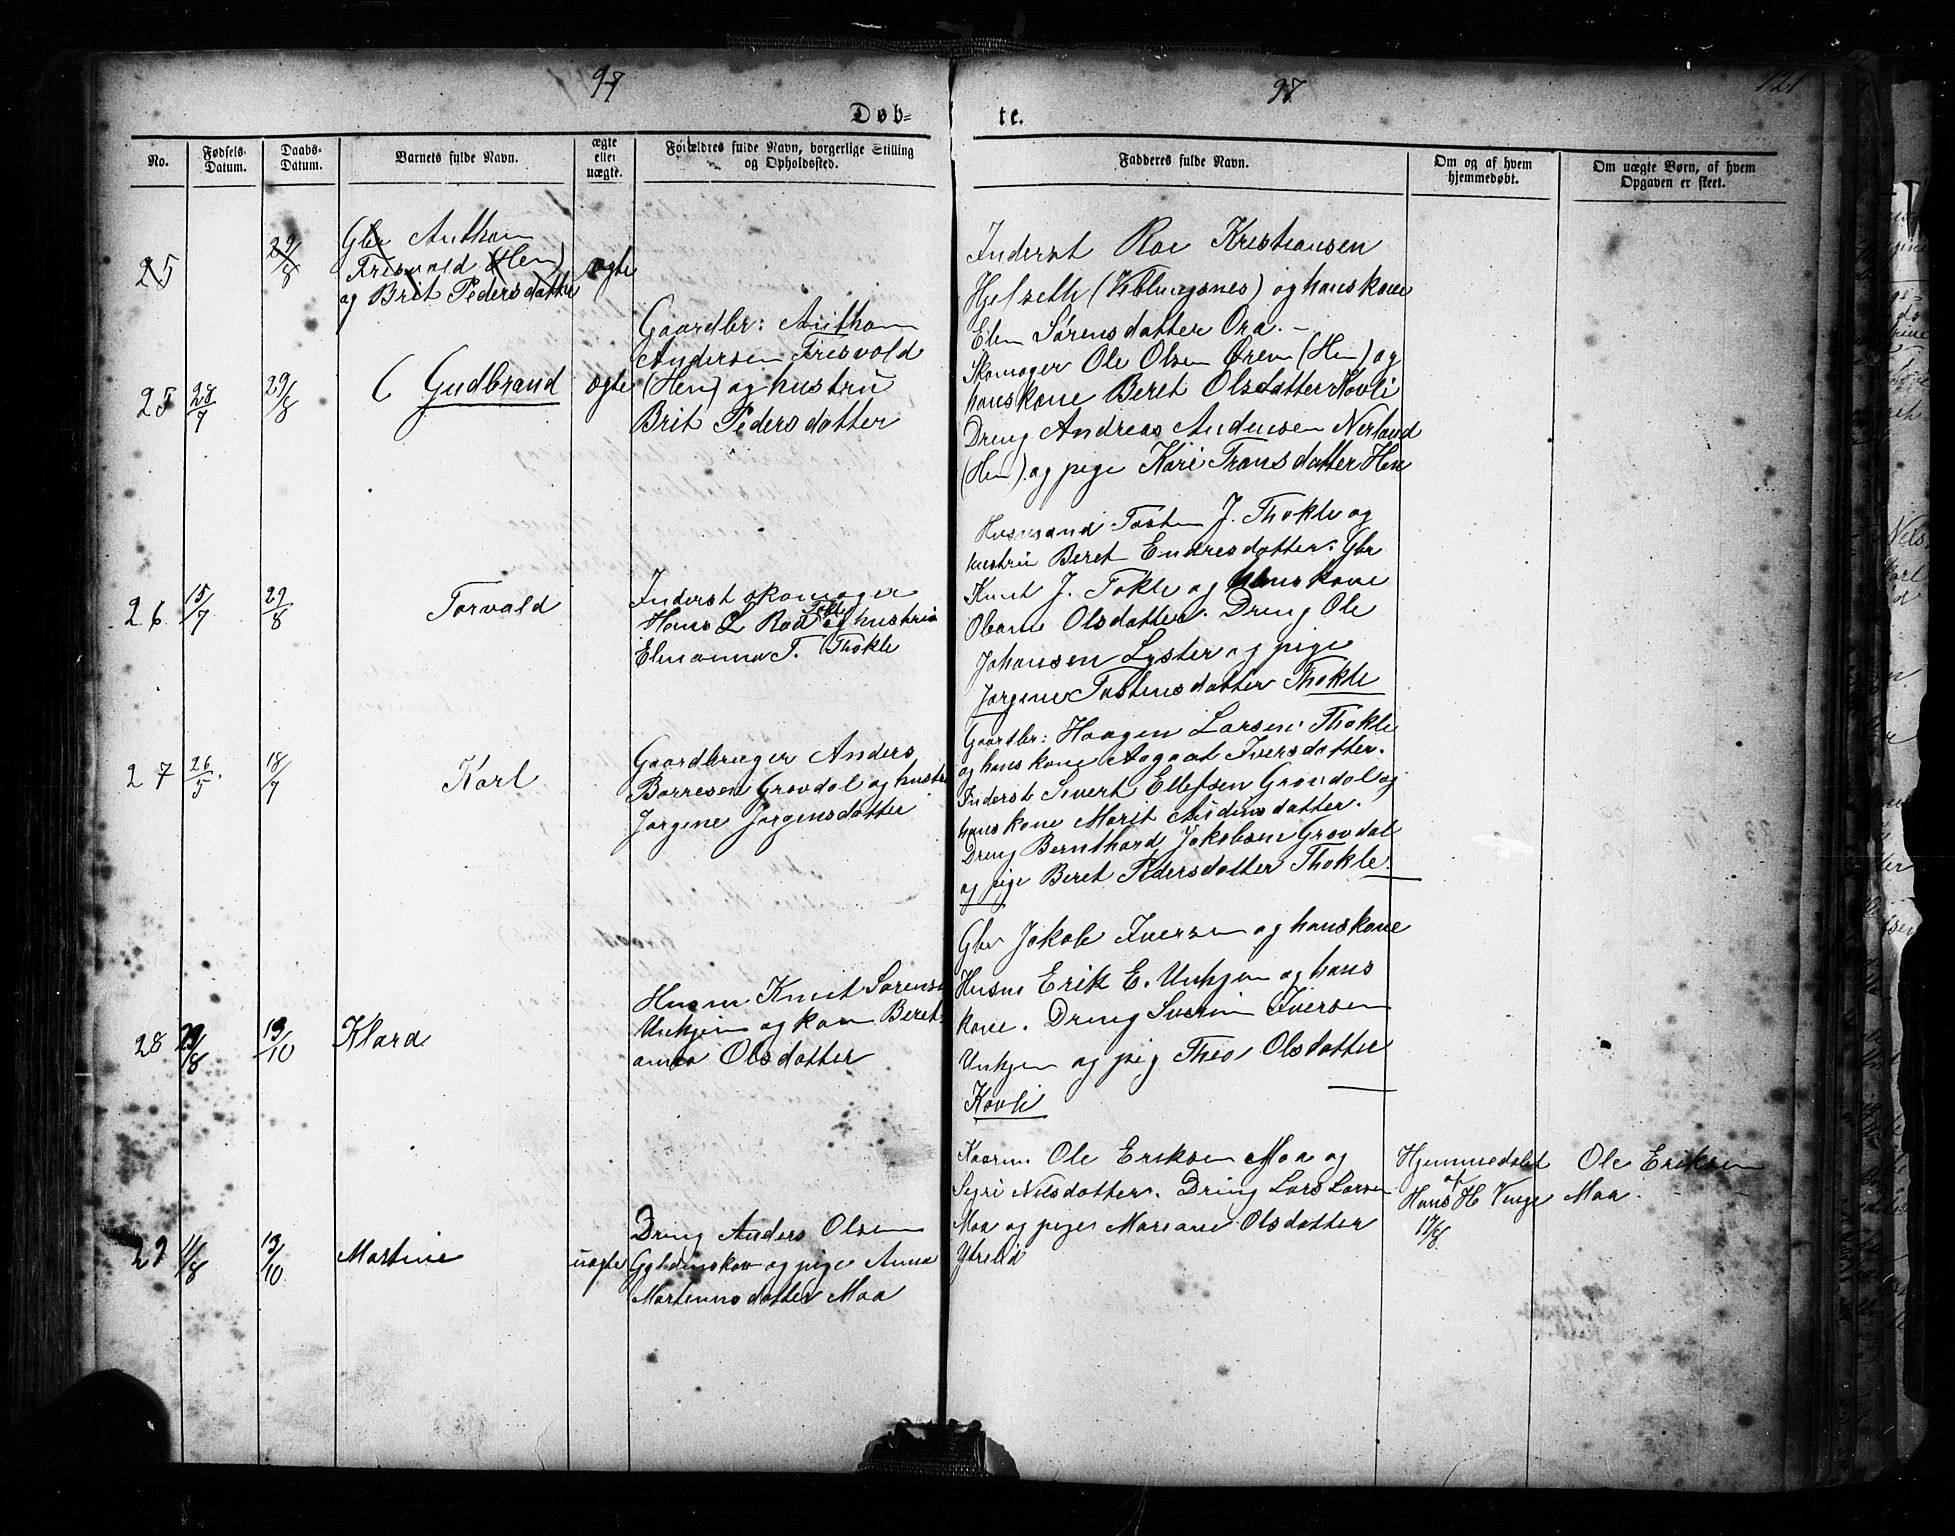 97
97
121
Døb=
te.
No.
Fødsels-
Datum.
Daabs-
Datum.
Barnets fulde Navn.
ægte
eller
uægte.
Forældres fulde Navn, borgerlige Stilling
og Opholdssted.
Fadderes fulde Navn.
Om og af hvem
hjemmedøbt.
Om uægte Børn, af hvem
Opgaven er skeet.
25
29/8
Gbr Anthon
Frisvold (Hen)
og Brit Pedersdatter
ægte
25
28/7
29/8
Gudbrand
ægte
Gaardbr: Anthon
Andersen Frisvold
(Hen) og hustru
Brit Pedersdatter
Inderst Roe Kristiansen
Hjelseth (Veblungsnes) og hans kone
Elen Sørensdatter Ora. -
Skomager Ole Olsen Øren (Hen) og
hans kone Beret Olsdatter Kovli
Dreng Andreas Andersen Nerland
(Hen). og pige Kari Transdatter Hen
26
15/7
29/8
Torvald
Inderst skomager
Hans L Rød Tokle og hustru
Elenanna T. Thokle
Husmand Tosten J. Thokle og
hustru Beret Endresdatter. Gbr
Knut J. Tokle og hans kone
Oleane Olsdatter. Dreng Ole
Johansen Lyster og pige
Jørgine Tostensdatter Thokle
27
26/5
18/7
Karl
Gaardbruger Anders
Børresen Grøvdal og hustru
Jørgine Jørgensdatter
Gaardbr: Haagen Larsen Thokle
og hans kone Aagaat Iversdatter.
Inderst Sivert Ellefsen Grøvdal og
hans kone Marit Andersdatter.
Dreng Bernthard Jakobsen Grøvdal
og pige Beret Pedersdatter Thokle.
28
29/8
13/10
Klara
Husm Knut Sørensen
Unhjem og kone Beret-
anna Olsdatter
Gbr Jakob Iversen og hans kone
Husm Erik E. Unhjem og hans
kone. Dreng Sverin Iversen
Unhjem og pig Thea Olsdatter
Kovli
29
11/8
13/10
Martine
uægte
Dreng Anders Olsen
Gyldenskov og pige Anna
Martinusdatter Moa
Kaarm Ole Eriksen Moa og
Syri Nilsdatter. Dreng Lars Larsen
Moa og pige Mariane Olsdatter
Ytreli
Hjemmedøbt
af
Hans H Venge
17/8.
Ole Eriksen
Moa.